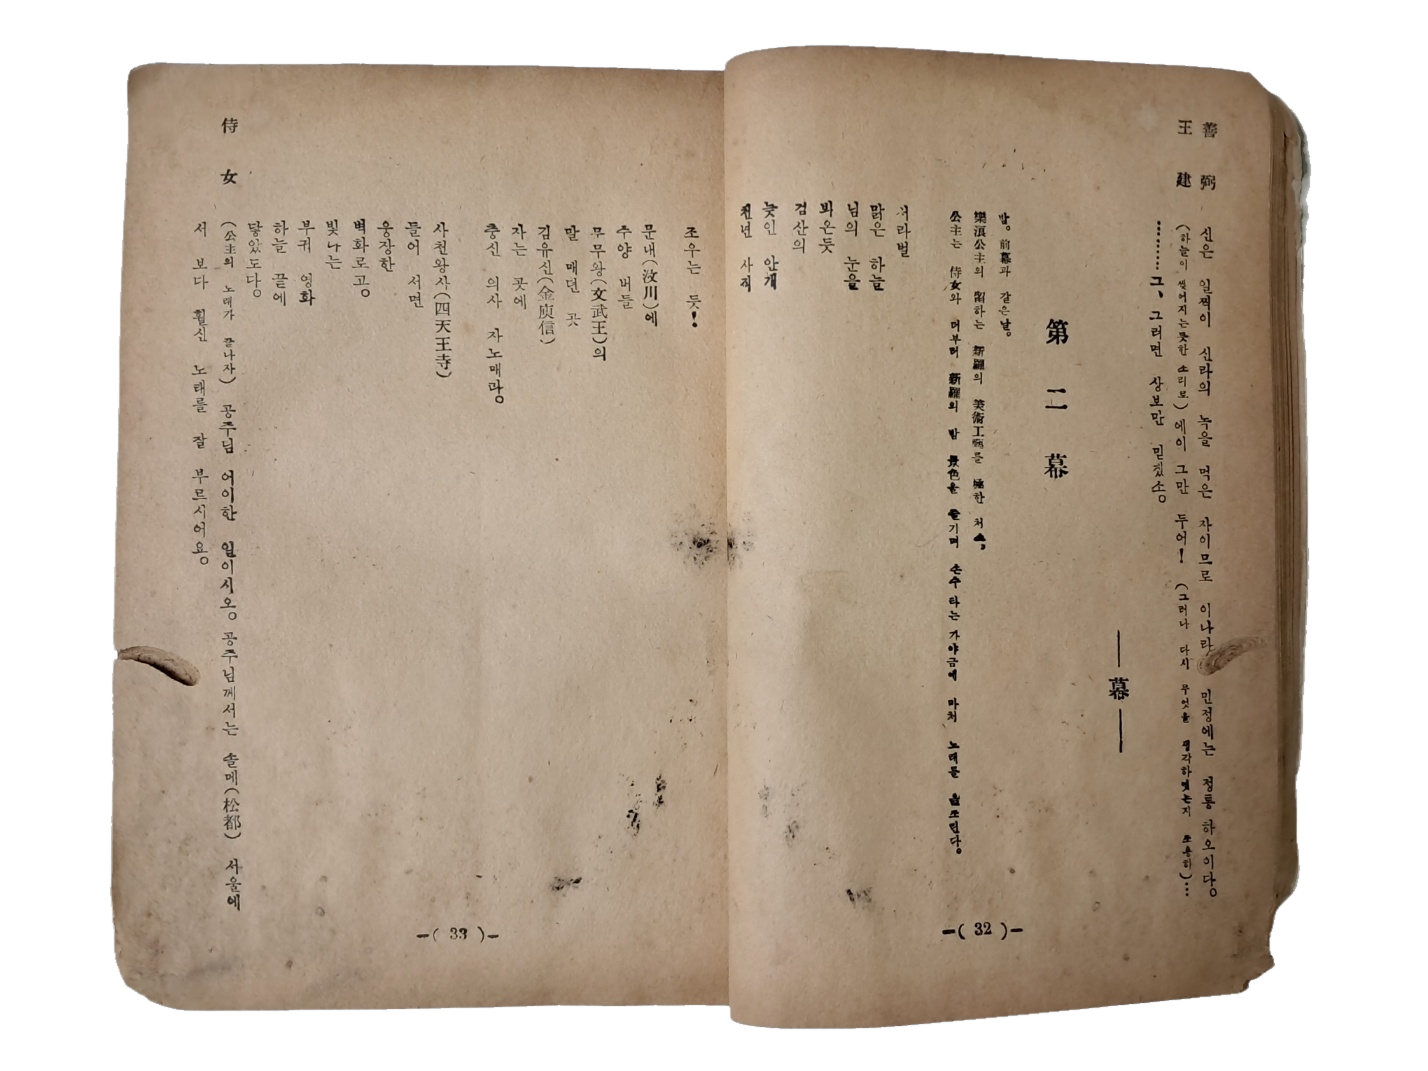 善弼 신은 일찍이 신라의 녹을 먹은 자이므로 이나라 민정에는 정통 하오이다。
王建 (하늘이 찢어지는듯한 소리로) 에이 그만 두어! (그러나 다시 무엇을 생각하였는지 조용히)…
………그、그러면 상보만 믿겠소。
—幕—
第二幕
밤。前幕과 같은날。
樂浪公主의 留하는 新羅의 美術工藝를 極한 처소,
公主는 侍女와 더부러 新羅의 밤 景色을 즐기며 손수 타는 가야금에 마처 노래를 읊조린다。
서라벌
맑은 하늘
님의 눈을
뵈온듯
검산의
늦인 안개
천년 사직
-( 32 )-
조우는 듯!
문내(汶川)에
수양 버들
무무왕(文武王)의
말 매던 곳
김유신(金庾信)
자는 곳에
충신 의사 자노매라。
사천왕사(四天王寺)
들어 서면
웅장한
벽화로고。
빛나는
부귀 영화
하늘 끝에
닿았도다。
侍女 (公主의 노래가 끝나자) 공주님 어이한 일이시오。공주님께서는 솔메(松都) 서울에
서 보다 훨신 노래를 잘 부르시어요。
-( 33 )-